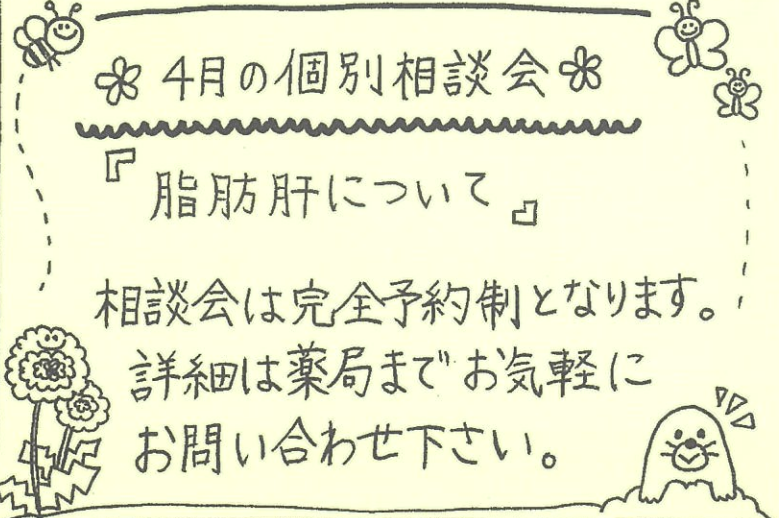 4月の個別相談会
『脂肪肝について』
相談会は完全予約制となります。
詳細は薬局までお気軽に
お問い合わせ下さい。